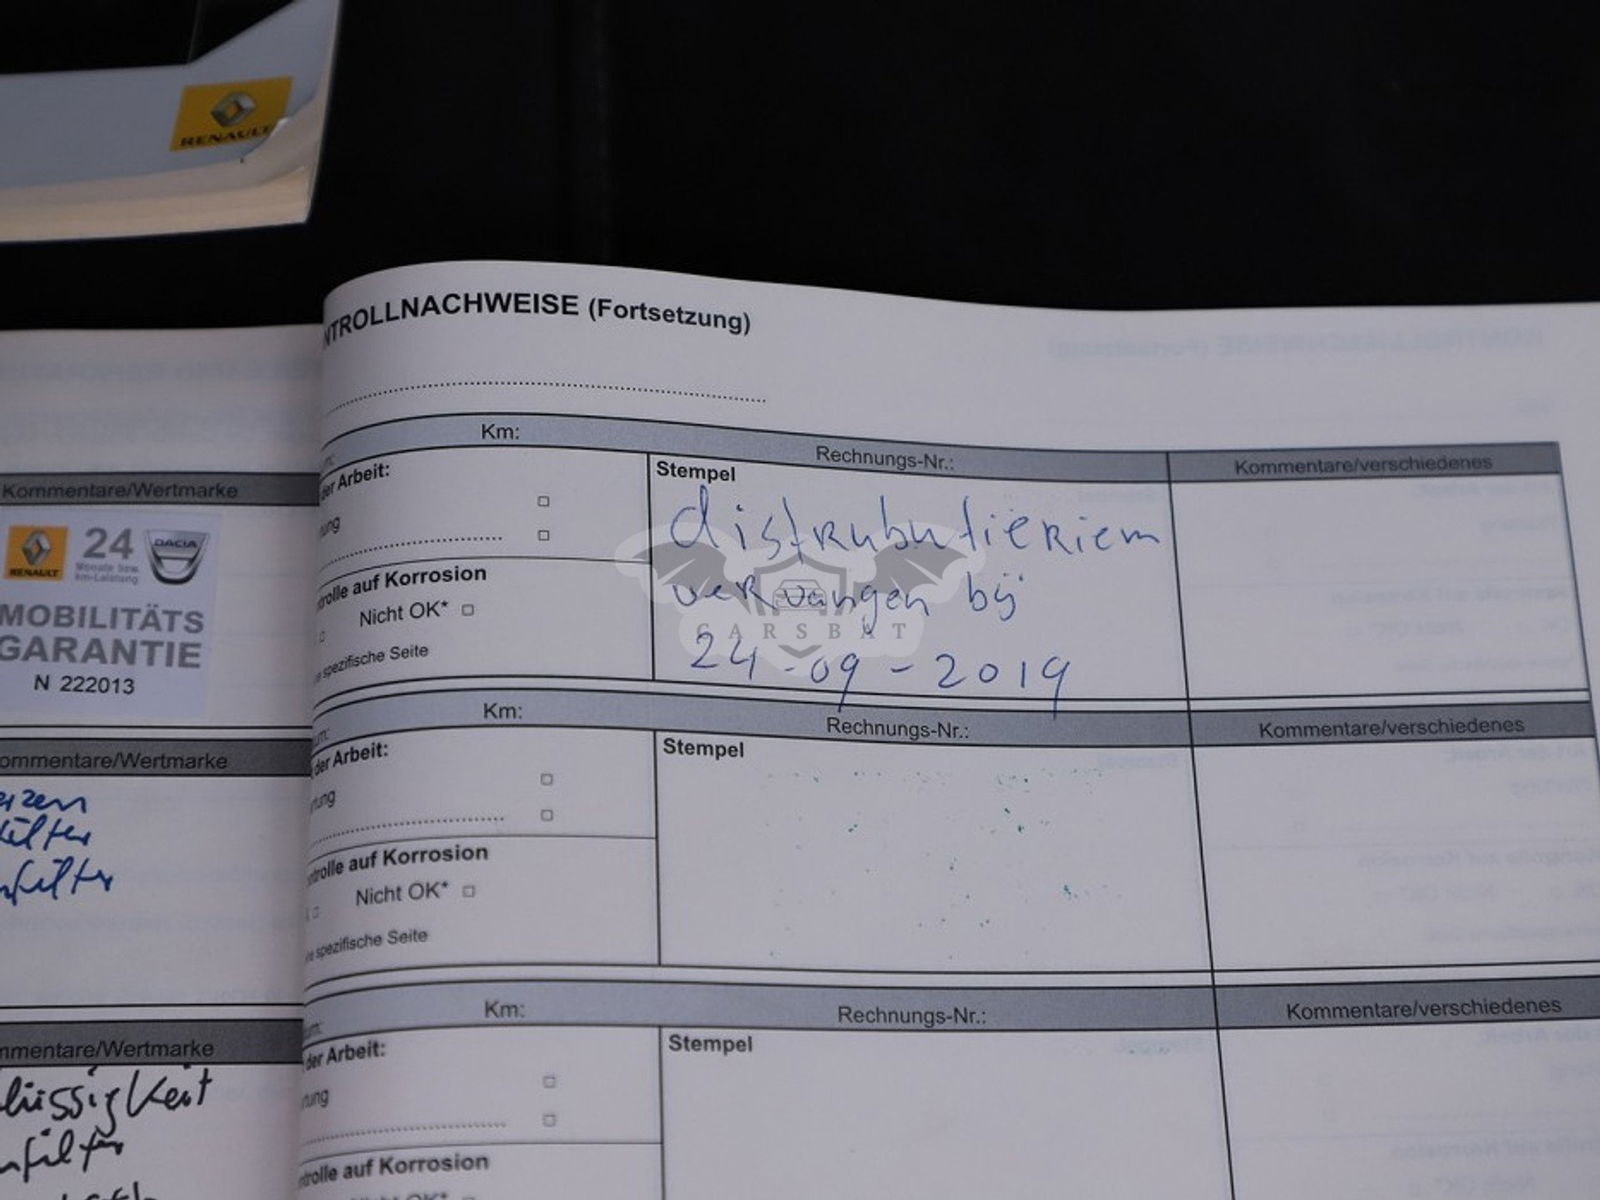 RENAULT
Kommentare/Wertmarke
RENAULT
24
Monate bzw.
km-Leistung
DACIA
MOBILITÄTS
GARANTIE
N 222013
ommentare/Wertmarke
erzen
filter
nfilter
mmentare/Wertmarke
lüssigkeit
nfilter
NTROLLNACHWEISE (Fortsetzung)
Km:
Rechnungs-Nr.:
Kommentare/verschiedenes
der Arbeit:
Stempel
distrubutieriem
vervangen bij
24-09-2019
CARSBAT
trolle auf Korrosion
Nicht OK*
spezifische Seite
Km:
Rechnungs-Nr.:
Kommentare/verschiedenes
der Arbeit:
Stempel
rtung
trolle auf Korrosion
Nicht OK*
spezifische Seite
Km:
Rechnungs-Nr.:
Kommentare/verschiedenes
der Arbeit:
Stempel
rtung
trolle auf Korrosion